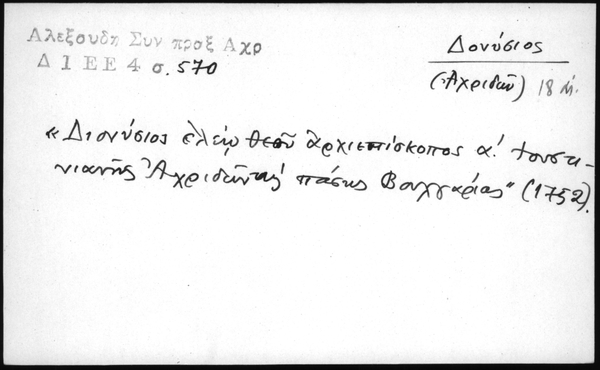 Αλεξουδη Συν προξ Αχρ
Δ Ι Ε Ε 4 σ. 570
Διονύσιος
(Ἀχριδῶν) 18 αἰ.
« Διονύσιος ἐλέῳ θεοῦ ἀρχιεπίσκοπος α΄. Ἰουστι-
νιανῆς Ἀχριδῶν καὶ πάσης Βουλγαρίας" (1752).